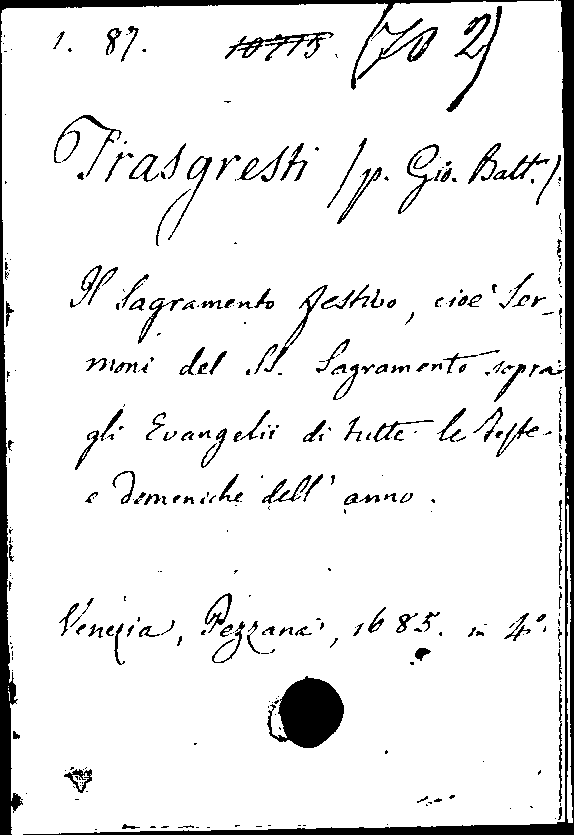 1. 87. 10715. (70 2)
Trasgresti (p. Gio. Batt.)
Il Sagramento festivo, cioè Ser-
moni del SS. Sagramento sopra
gli Evangelii di tutte le Feste
e Domeniche dell' anno.
Venezia, Pezzana, 1685. in 4°.